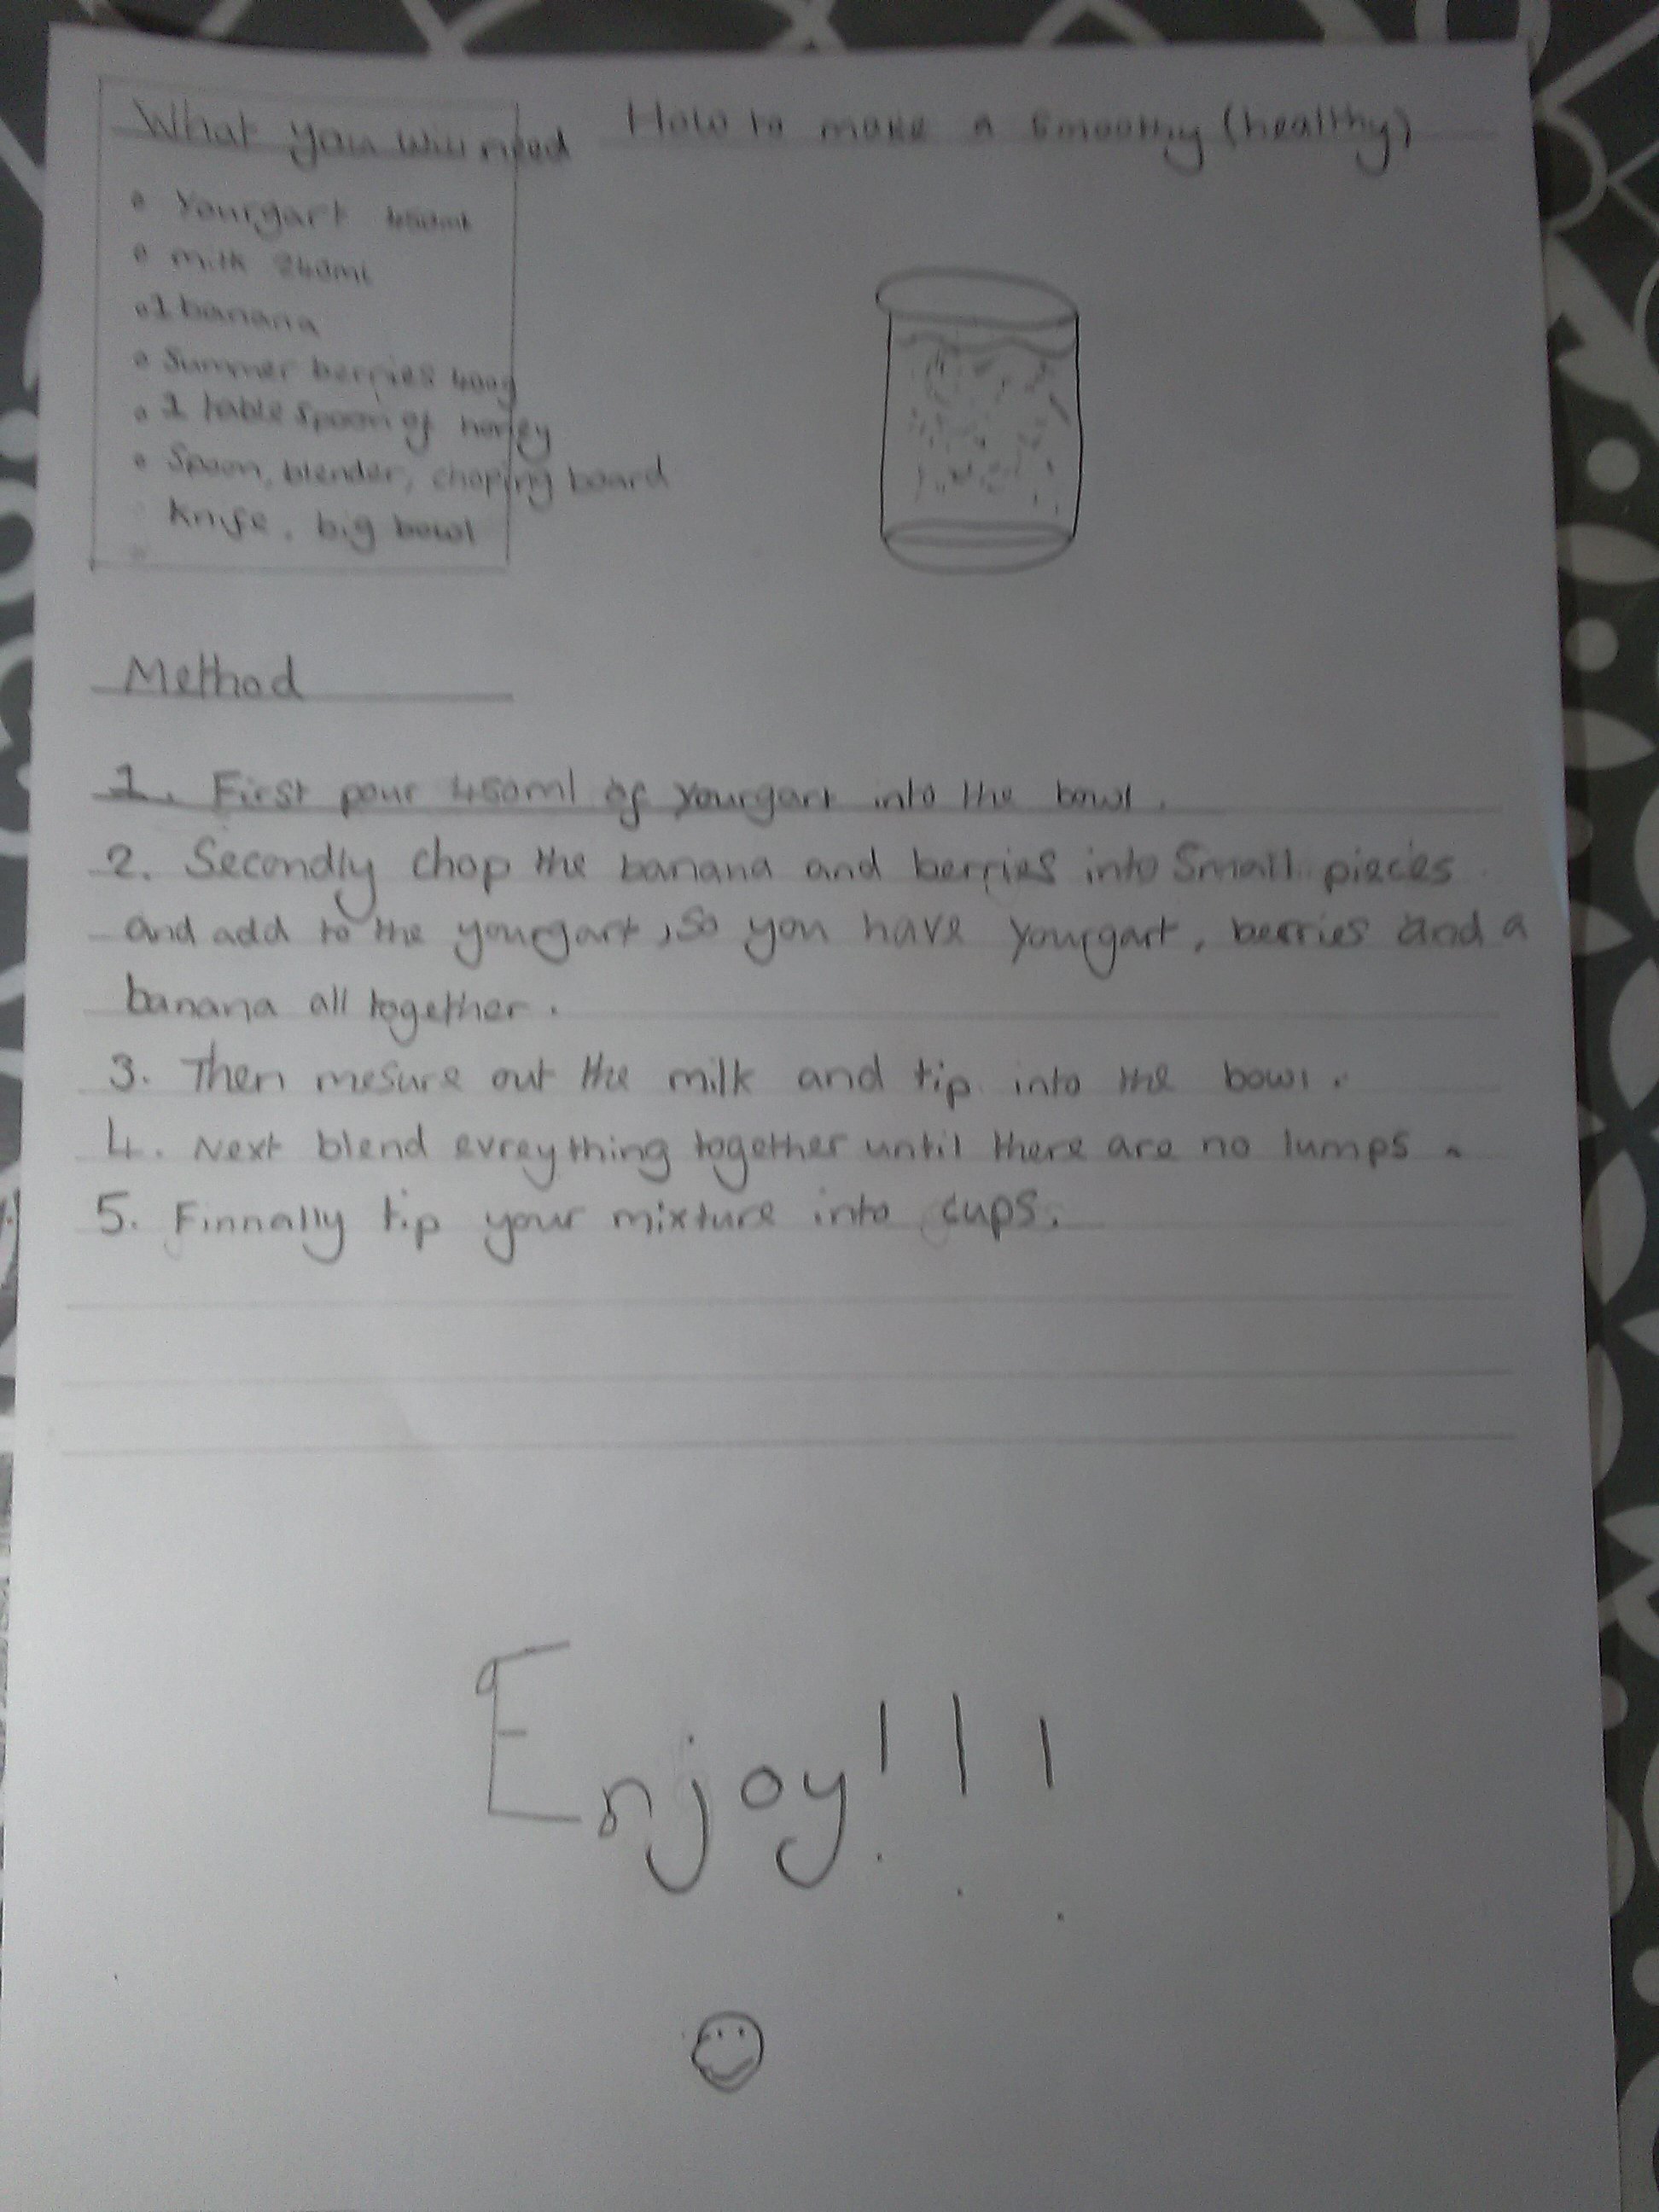 How to make a Smoothy (healthy)
What you will need
Yourgart 450ml
milk 240ml
1 banana
Summer berries 400g
1 table spoon of honey
Spoon, blender, choping board
Knife, big bowl
Method
1. First pour 450ml of yourgart into the bowl.
2. Secondly chop the banana and berries into Small pieces
and add to the yourgart, so you have yourgart, berries and a
banana all together.
3. Then mesure out the milk and tip into the bowl.
4. Next blend evreything together until there are no lumps.
5. Finnally tip your mixture into cups.
Enjoy!!!